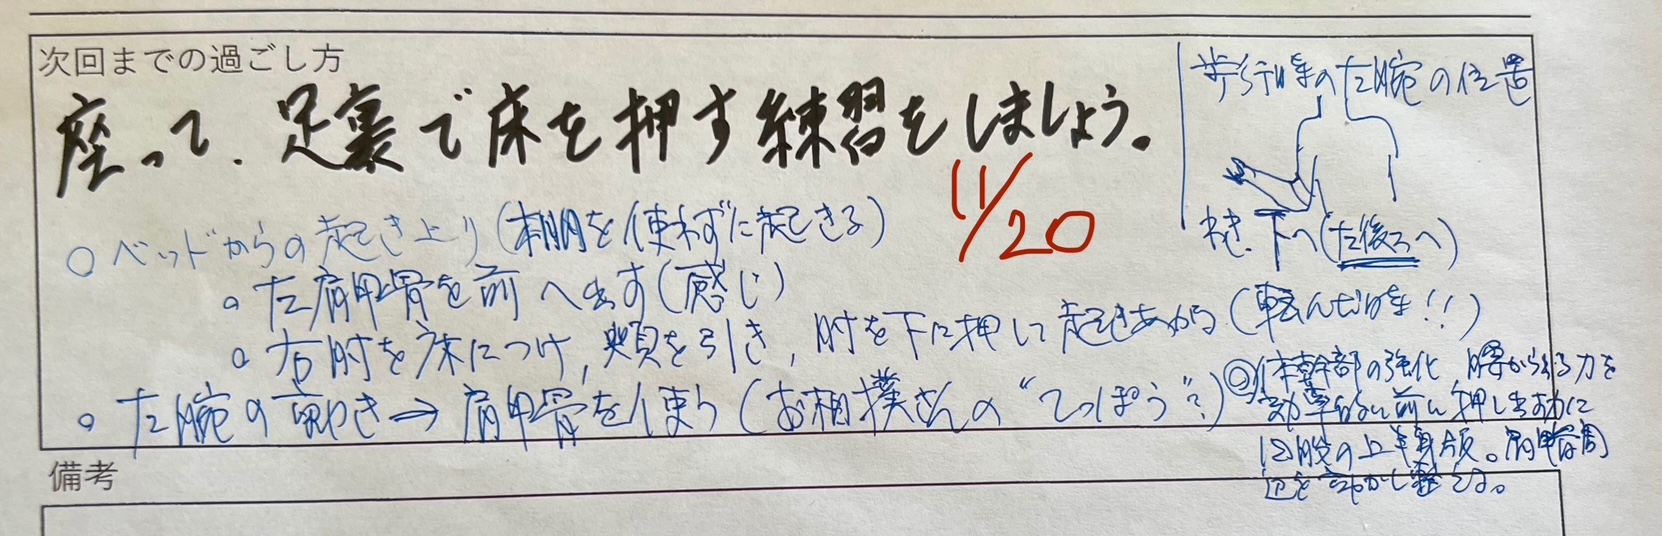 次回までの過ごし方
座って、足裏で床を押す練習をしましょう。
11/20
歩行時の左腕の位置
わき、下へ(左後ろへ)
○ベッドからの起き上り(棚を使わずに起きる)
○左肩甲骨を前へ出す(感じ)
○右肘を床につけ, 顎を引き, 肘を下に押して起きあがる(転んだ時!!)
○左腕の動き→肩甲骨を使う(お相撲さんの“てっぽう”?)
◎体幹部の強化 腰からくる力を
効率的に前に押し出すために
四股の上半身版。肩甲骨周
辺を動かし整える。
備考